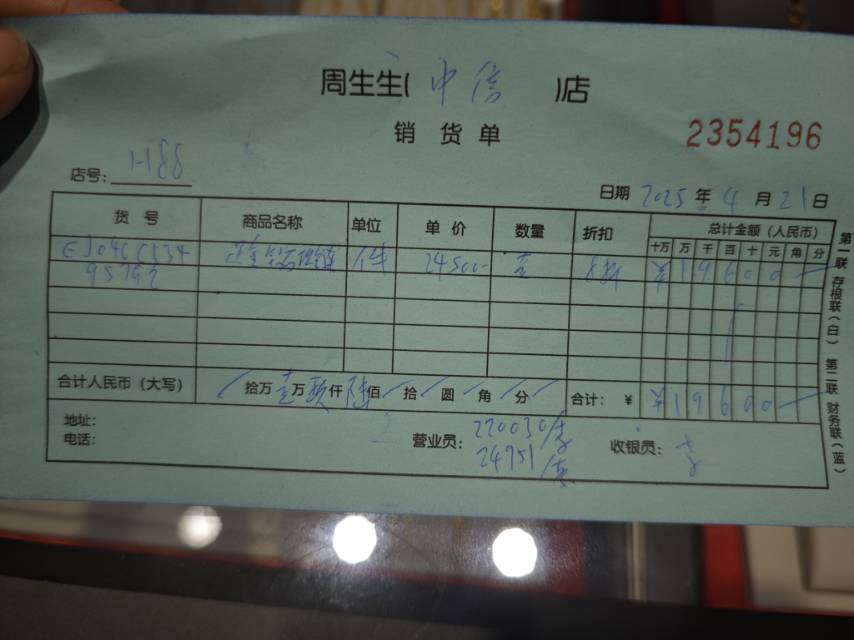 周生生(中信)店
销货单
2354196
店号: H88
日期 2025年4月21日
货号 商品名称 单位 单价 数量 折扣 总计金额（人民币）
十万 万 千 百 十 元 角 分
件 24500- 壹 8折 ¥19600
95792
合计人民币（大写） 拾万壹万玖仟陆佰拾圆角分 合计：¥ ¥19600
地址：
电话：
营业员： 220030/
24751/
收银员：
第一联 存根联（白） 第二联 财务联（蓝）